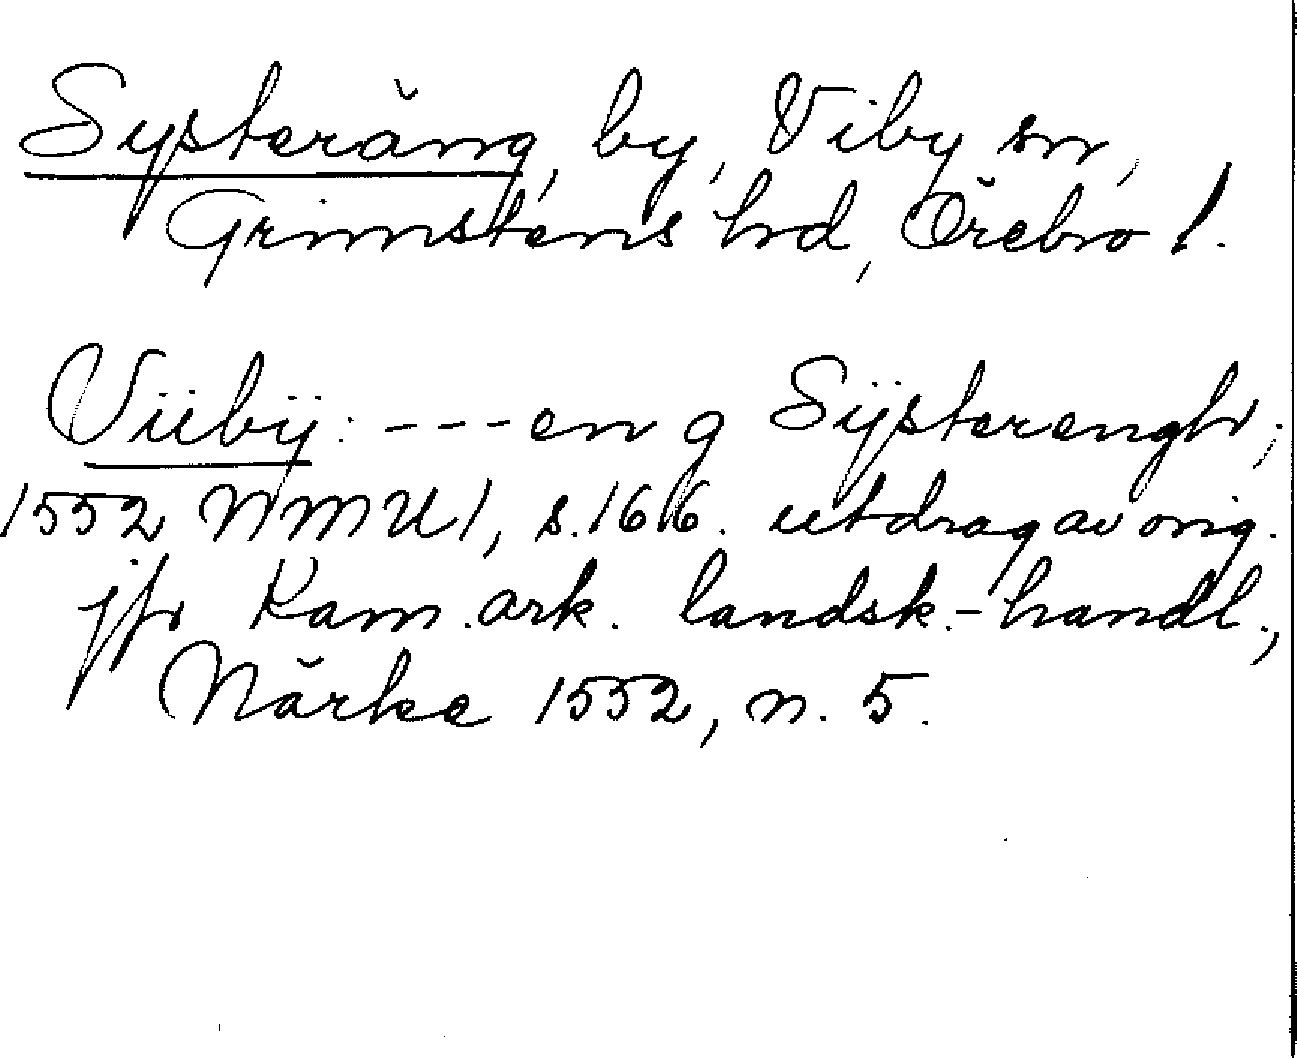 Systeräng, by, Viby sn,
Grimstens hd, Örebro l.
Viibÿ: --- en g Sÿsterengh;
1552 NMU1, s. 166. utdrag av orig.
jfr Kam. ark. landsk.-handl.,
Närke 1552, n. 5.